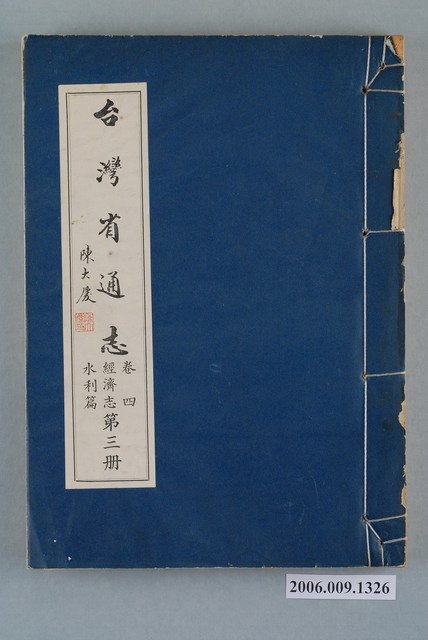 台灣省通志
陳大慶
卷四
經濟志
水利篇
第三册
2006.009.1326